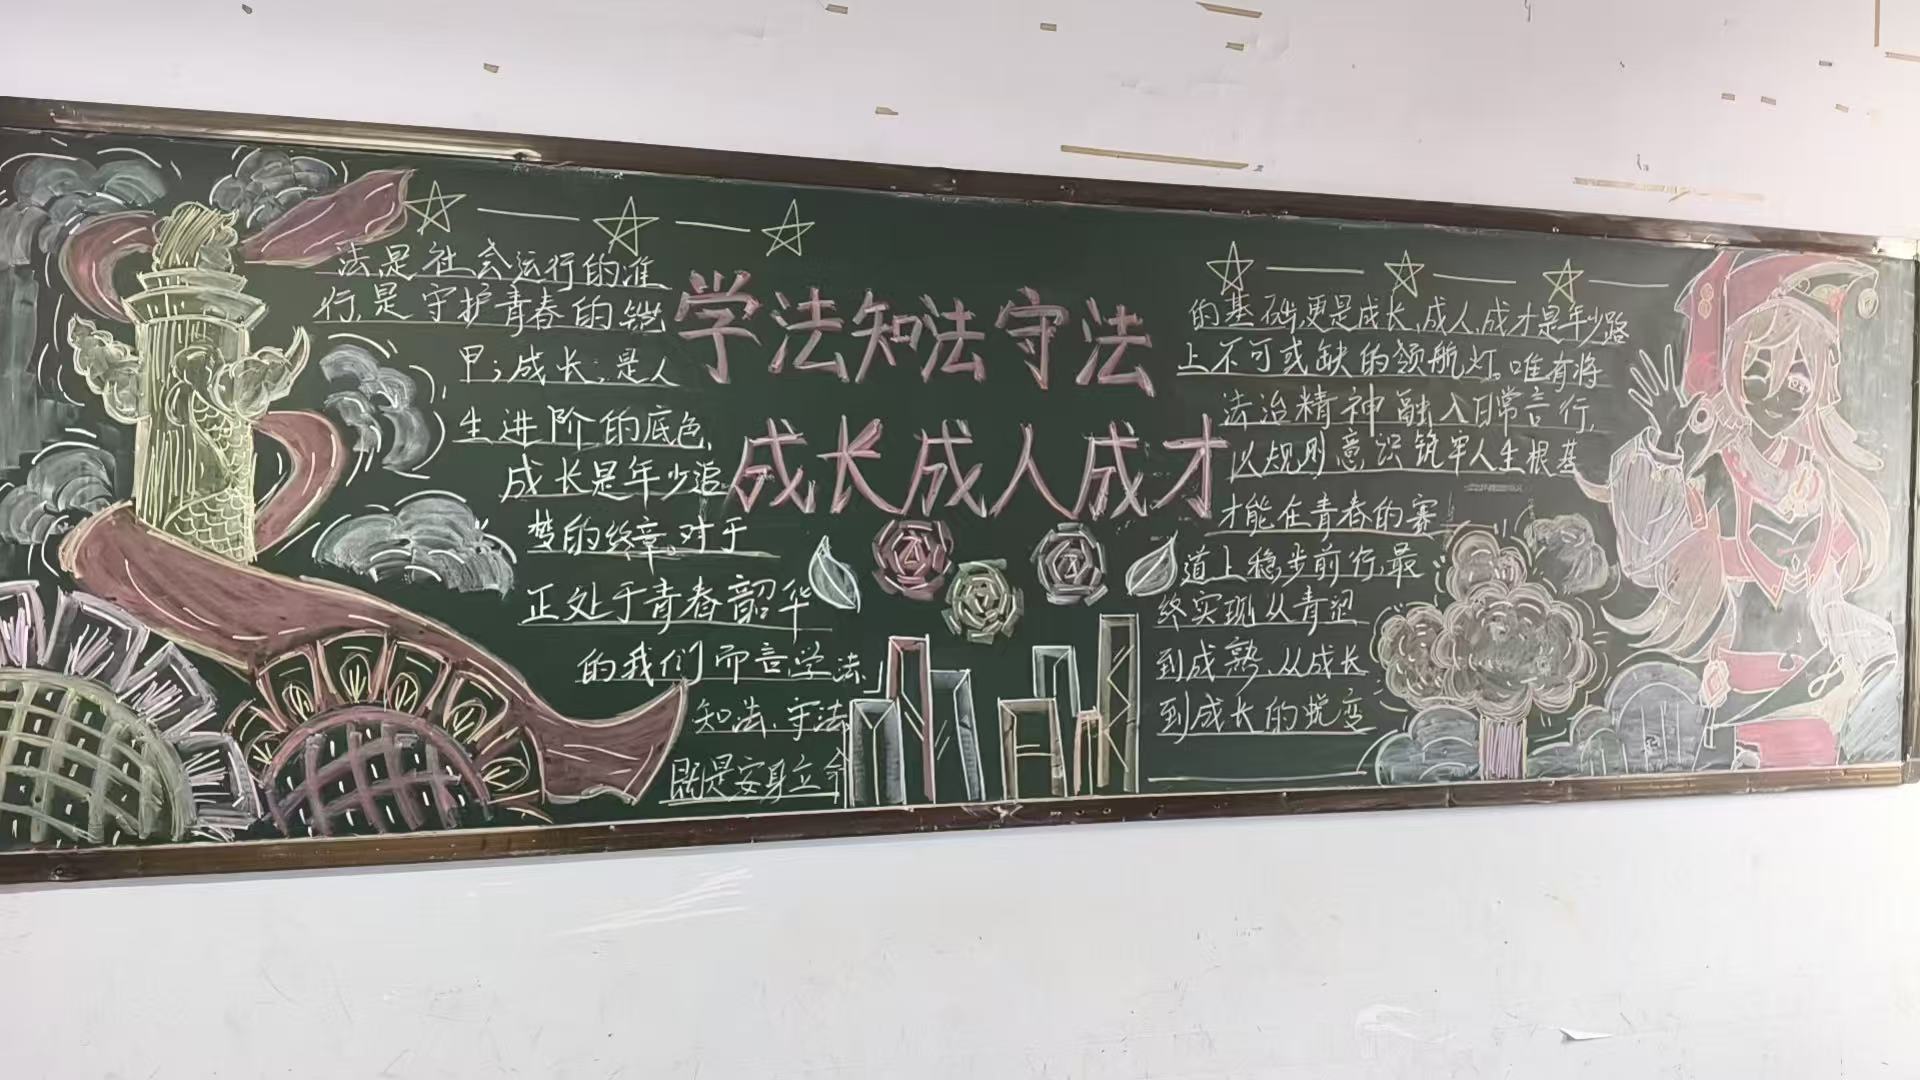 学法知法守法
成长成人成才
法是社会运行的准
行,是守护青春的铠
甲;成长;是人
生进阶的底色,
成长是年少追
梦的终章。对于
正处于青春韶华
的我们而言学法、
知法、守法
既是安身立命
的基础,更是成长,成人,成才是年少路
上不可或缺的领航灯。唯有将
法治精神融入日常言行,
以规则意识筑牢人生根基
才能在青春的赛
道上稳步前行,最
终实现从青涩
到成熟、从成长
到成长的蜕变